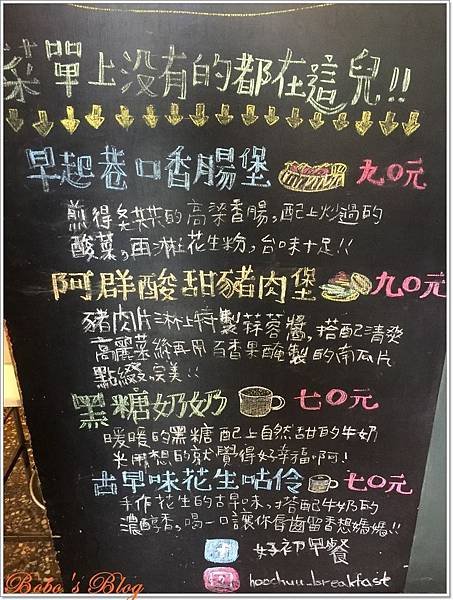 菜單上沒有的都在這兒!!
早起巷口香腸堡 九0元
煎得失失的高粱香腸,配上炒過的
酸菜,再淋上花生粉,台味十足!!
阿群酸甜豬肉堡 九0元
豬肉片淋上特製蒜蓉醬,搭配清爽
高麗菜絲再用百香果醃製的南瓜片
點綴 完美!!
黑糖奶奶 七0元
暖暖的黑糖 配上自然甜的牛奶
光用想的就覺得好幸福啊!
古早味花生咕伶 七0元
手作花生的古早味,搭配牛奶的
濃醇香,喝一口讓你唇齒留香想媽媽!!
好初早餐
hoochuu_breakfast
Bobo.'s Blog